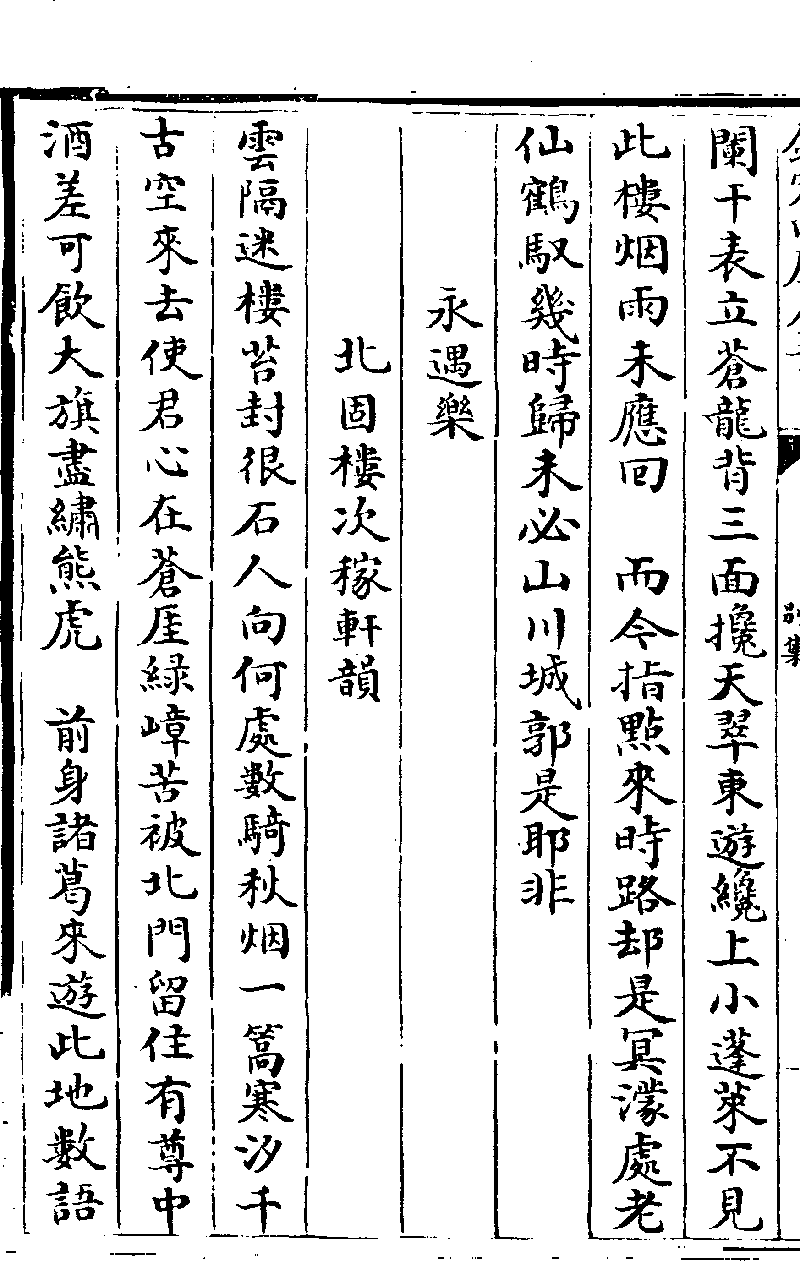 闌干表立蒼龍背三面攙天翠東遊纔上小蓬萊不見
此樓烟雨未應回　而今指點來時路却是冥濛處老
仙鶴馭幾時歸未必山川城郭是耶非
永遇樂
北固樓次稼軒韻
雲隔迷樓苔封很石人向何處數騎秋烟一篙寒汐千
古空來去使君心在蒼厓緑嶂苦被北門留住有尊中
酒差可飲大旗盡繡熊虎　前身諸葛來遊此地數語
別集